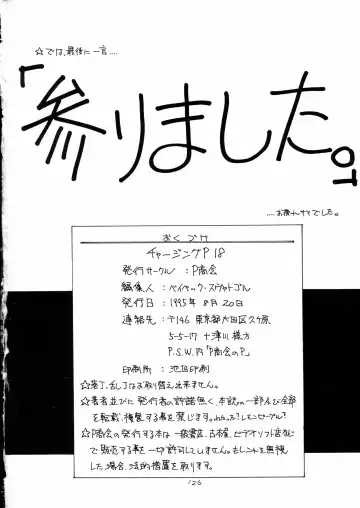 ☆では、最後に一言....
「参りました。」
....お疲れサマでした。
おくづけ
チャージングP 18
発行サークル : P商会
編集人 : ペイペック・スワットゴル
発行日 : 1995年 8月 20日
連絡先 : 〒146 東京都大田区久ケ原
5-5-17 十津川様方
P.S.W.内「P商会のP」
印刷所 : 池田印刷
☆落丁、乱丁はお取り替え出来ません。
☆著者並びに発行者の許諾無く、本誌の一部及び全部
を転載、複製する事を禁じます。
☆P商会の発行する本は一般書店、古本屋、ビデオソフト店など
で販売する事を一切許可していません。もしこれを無視
した場合、法的措置を取ります。
126